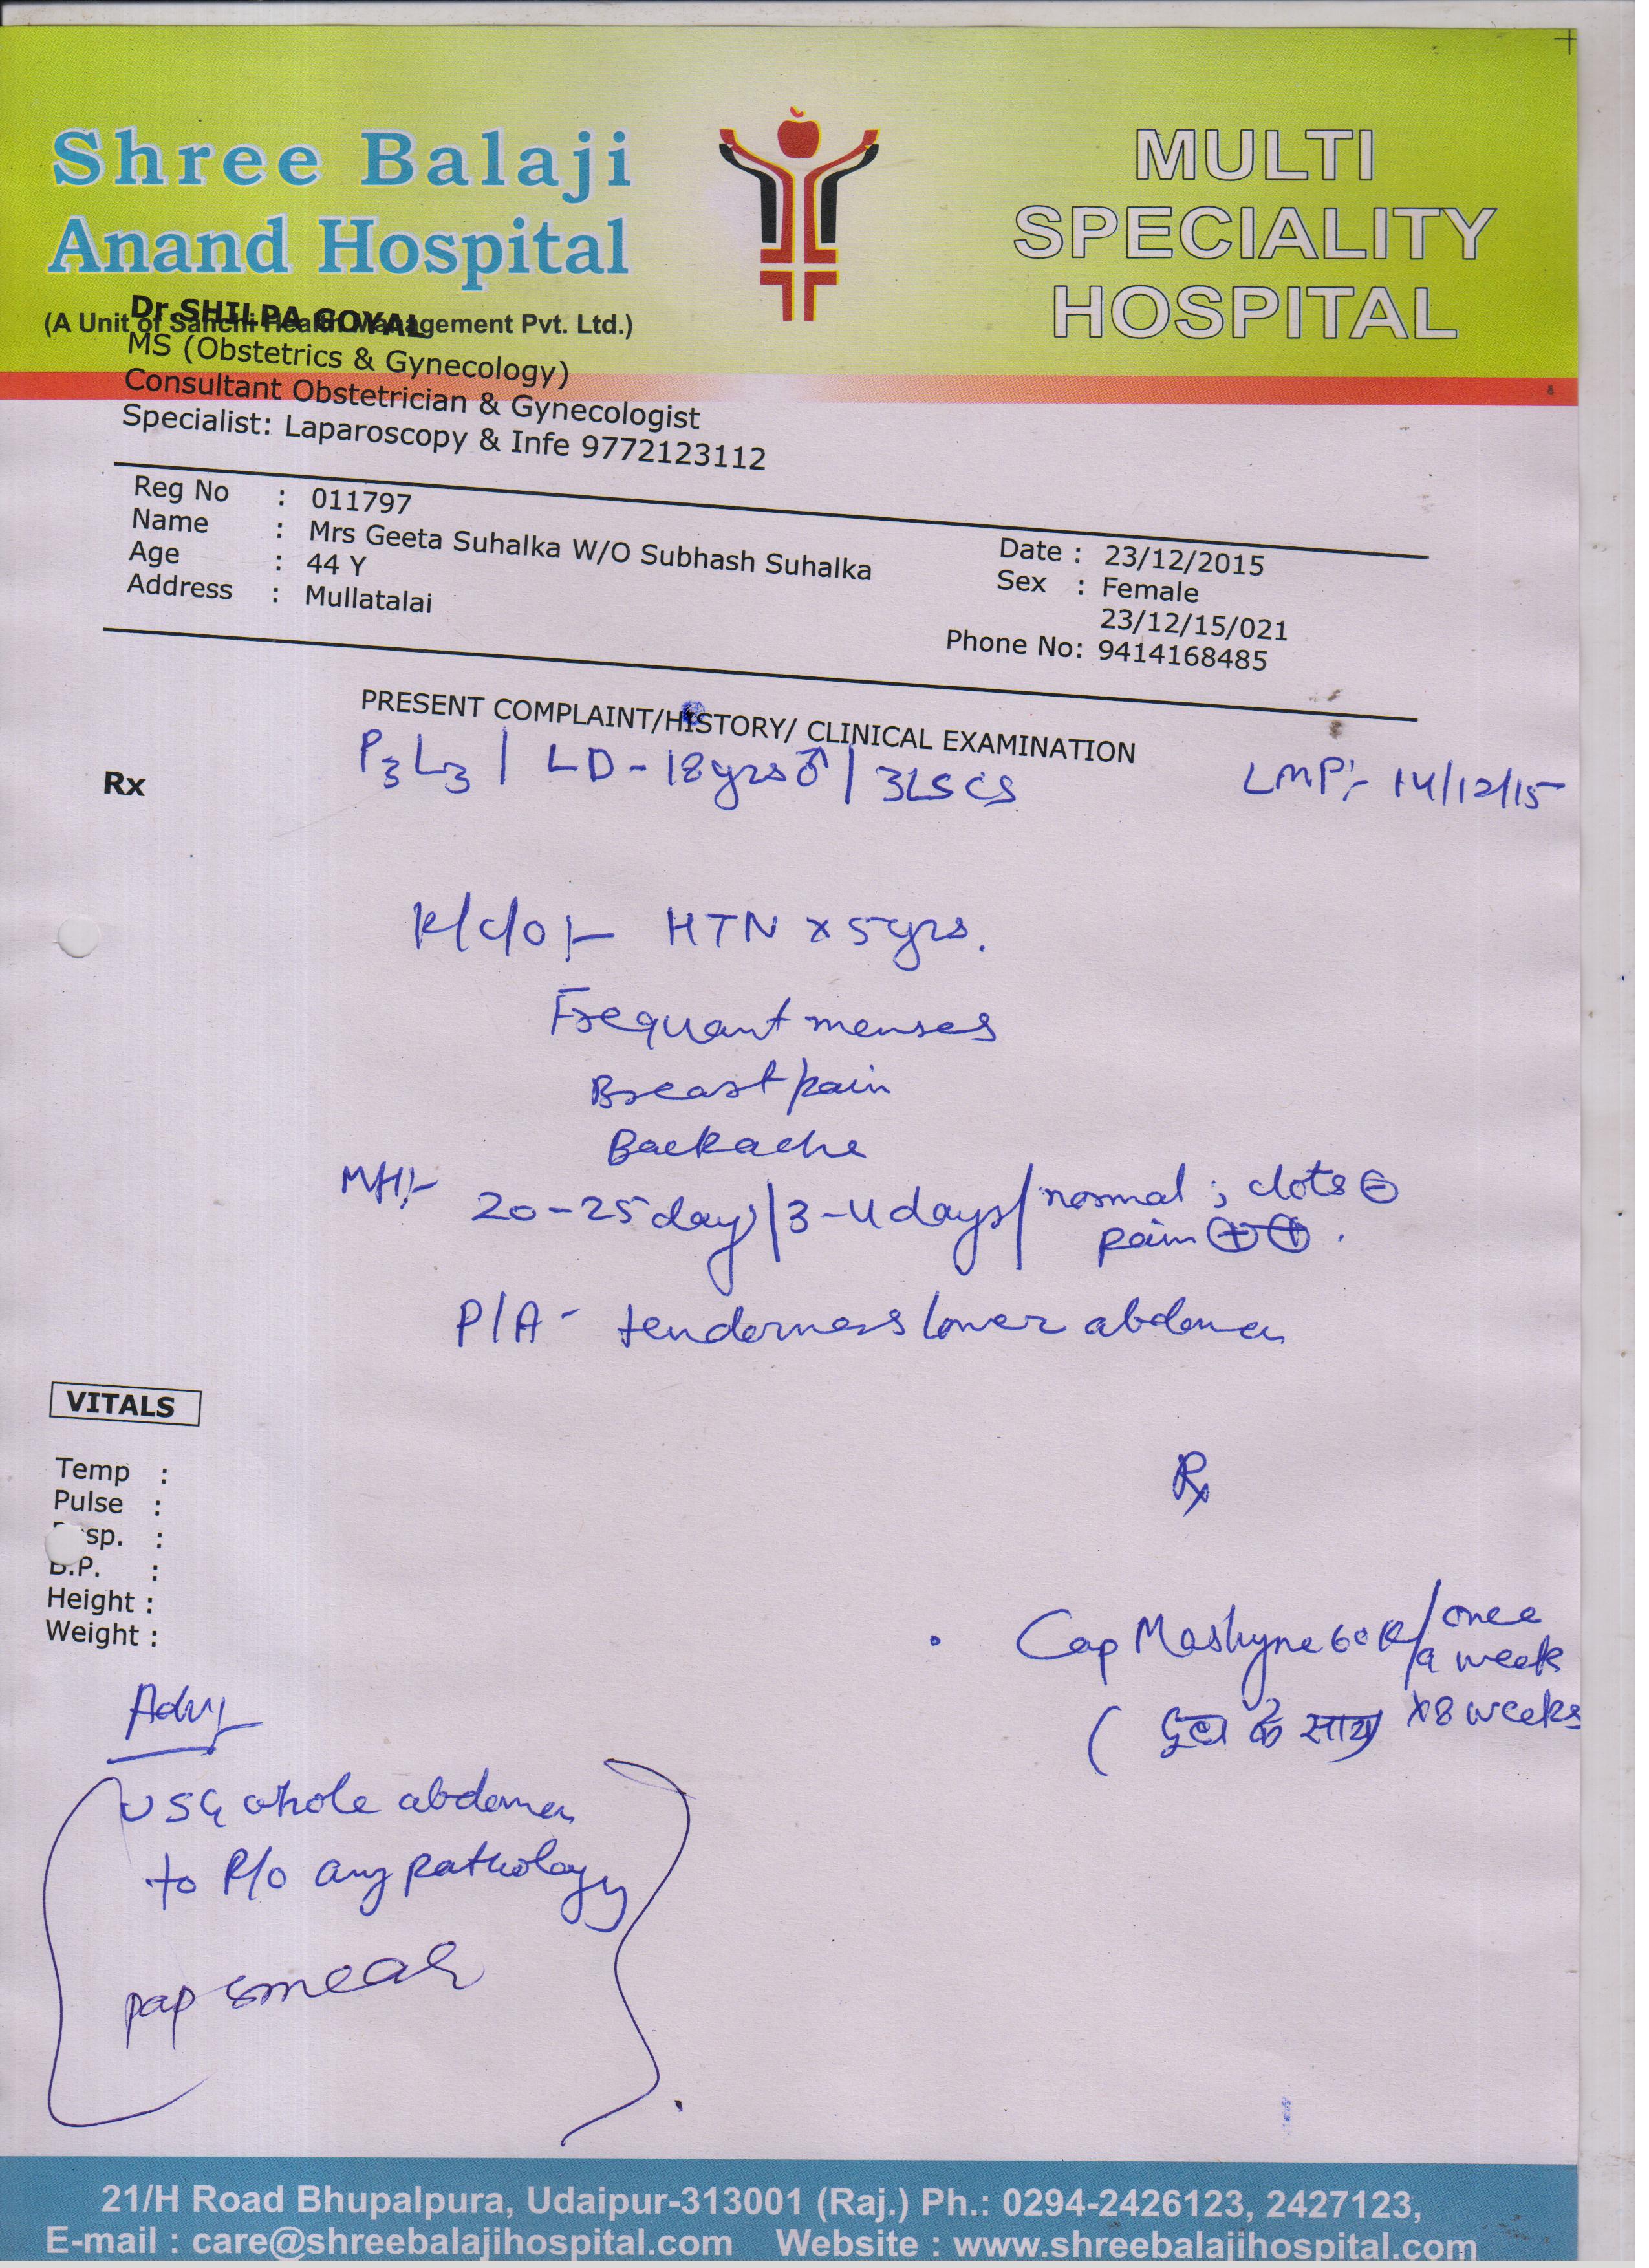 Shree Balaji
Anand Hospital
MULTI
SPECIALITY
HOSPITAL
Dr SHILPA GOYAL
(A Unit of Sanchi Health Management Pvt. Ltd.)
MS (Obstetrics & Gynecology)
Consultant Obstetrician & Gynecologist
Specialist: Laparoscopy & Infe 9772123112
Reg No : 011797
Name : Mrs Geeta Suhalka W/O Subhash Suhalka
Age : 44 Y
Address : Mullatalai
Date : 23/12/2015
Sex : Female
23/12/15/021
Phone No: 9414168485
PRESENT COMPLAINT/HISTORY/ CLINICAL EXAMINATION
Rx
P3L3 | LD - 18yrs ♂ | 3LSCS
LMP:- 14/12/15
K/c/o :- HTN x 5yrs.
Frequant menses
Breast pain
Backache
M/H:- 20-25 days | 3-4 days / normal ; clots ⊖
pain ⊕⊕ .
P/A - tenderness lower abdomen
VITALS
Temp :
Pulse :
sp. :
B.P. :
Height :
Weight :
Rx
Cap 60K / once
a week
( दूध के साथ x 8 weeks
Adv
USG whole abdomen
to R/o any pathology
pap smear
21/H Road Bhupalpura, Udaipur-313001 (Raj.) Ph.: 0294-2426123, 2427123,
E-mail : care@shreebalajihospital.com Website : www.shreebalajihospital.com